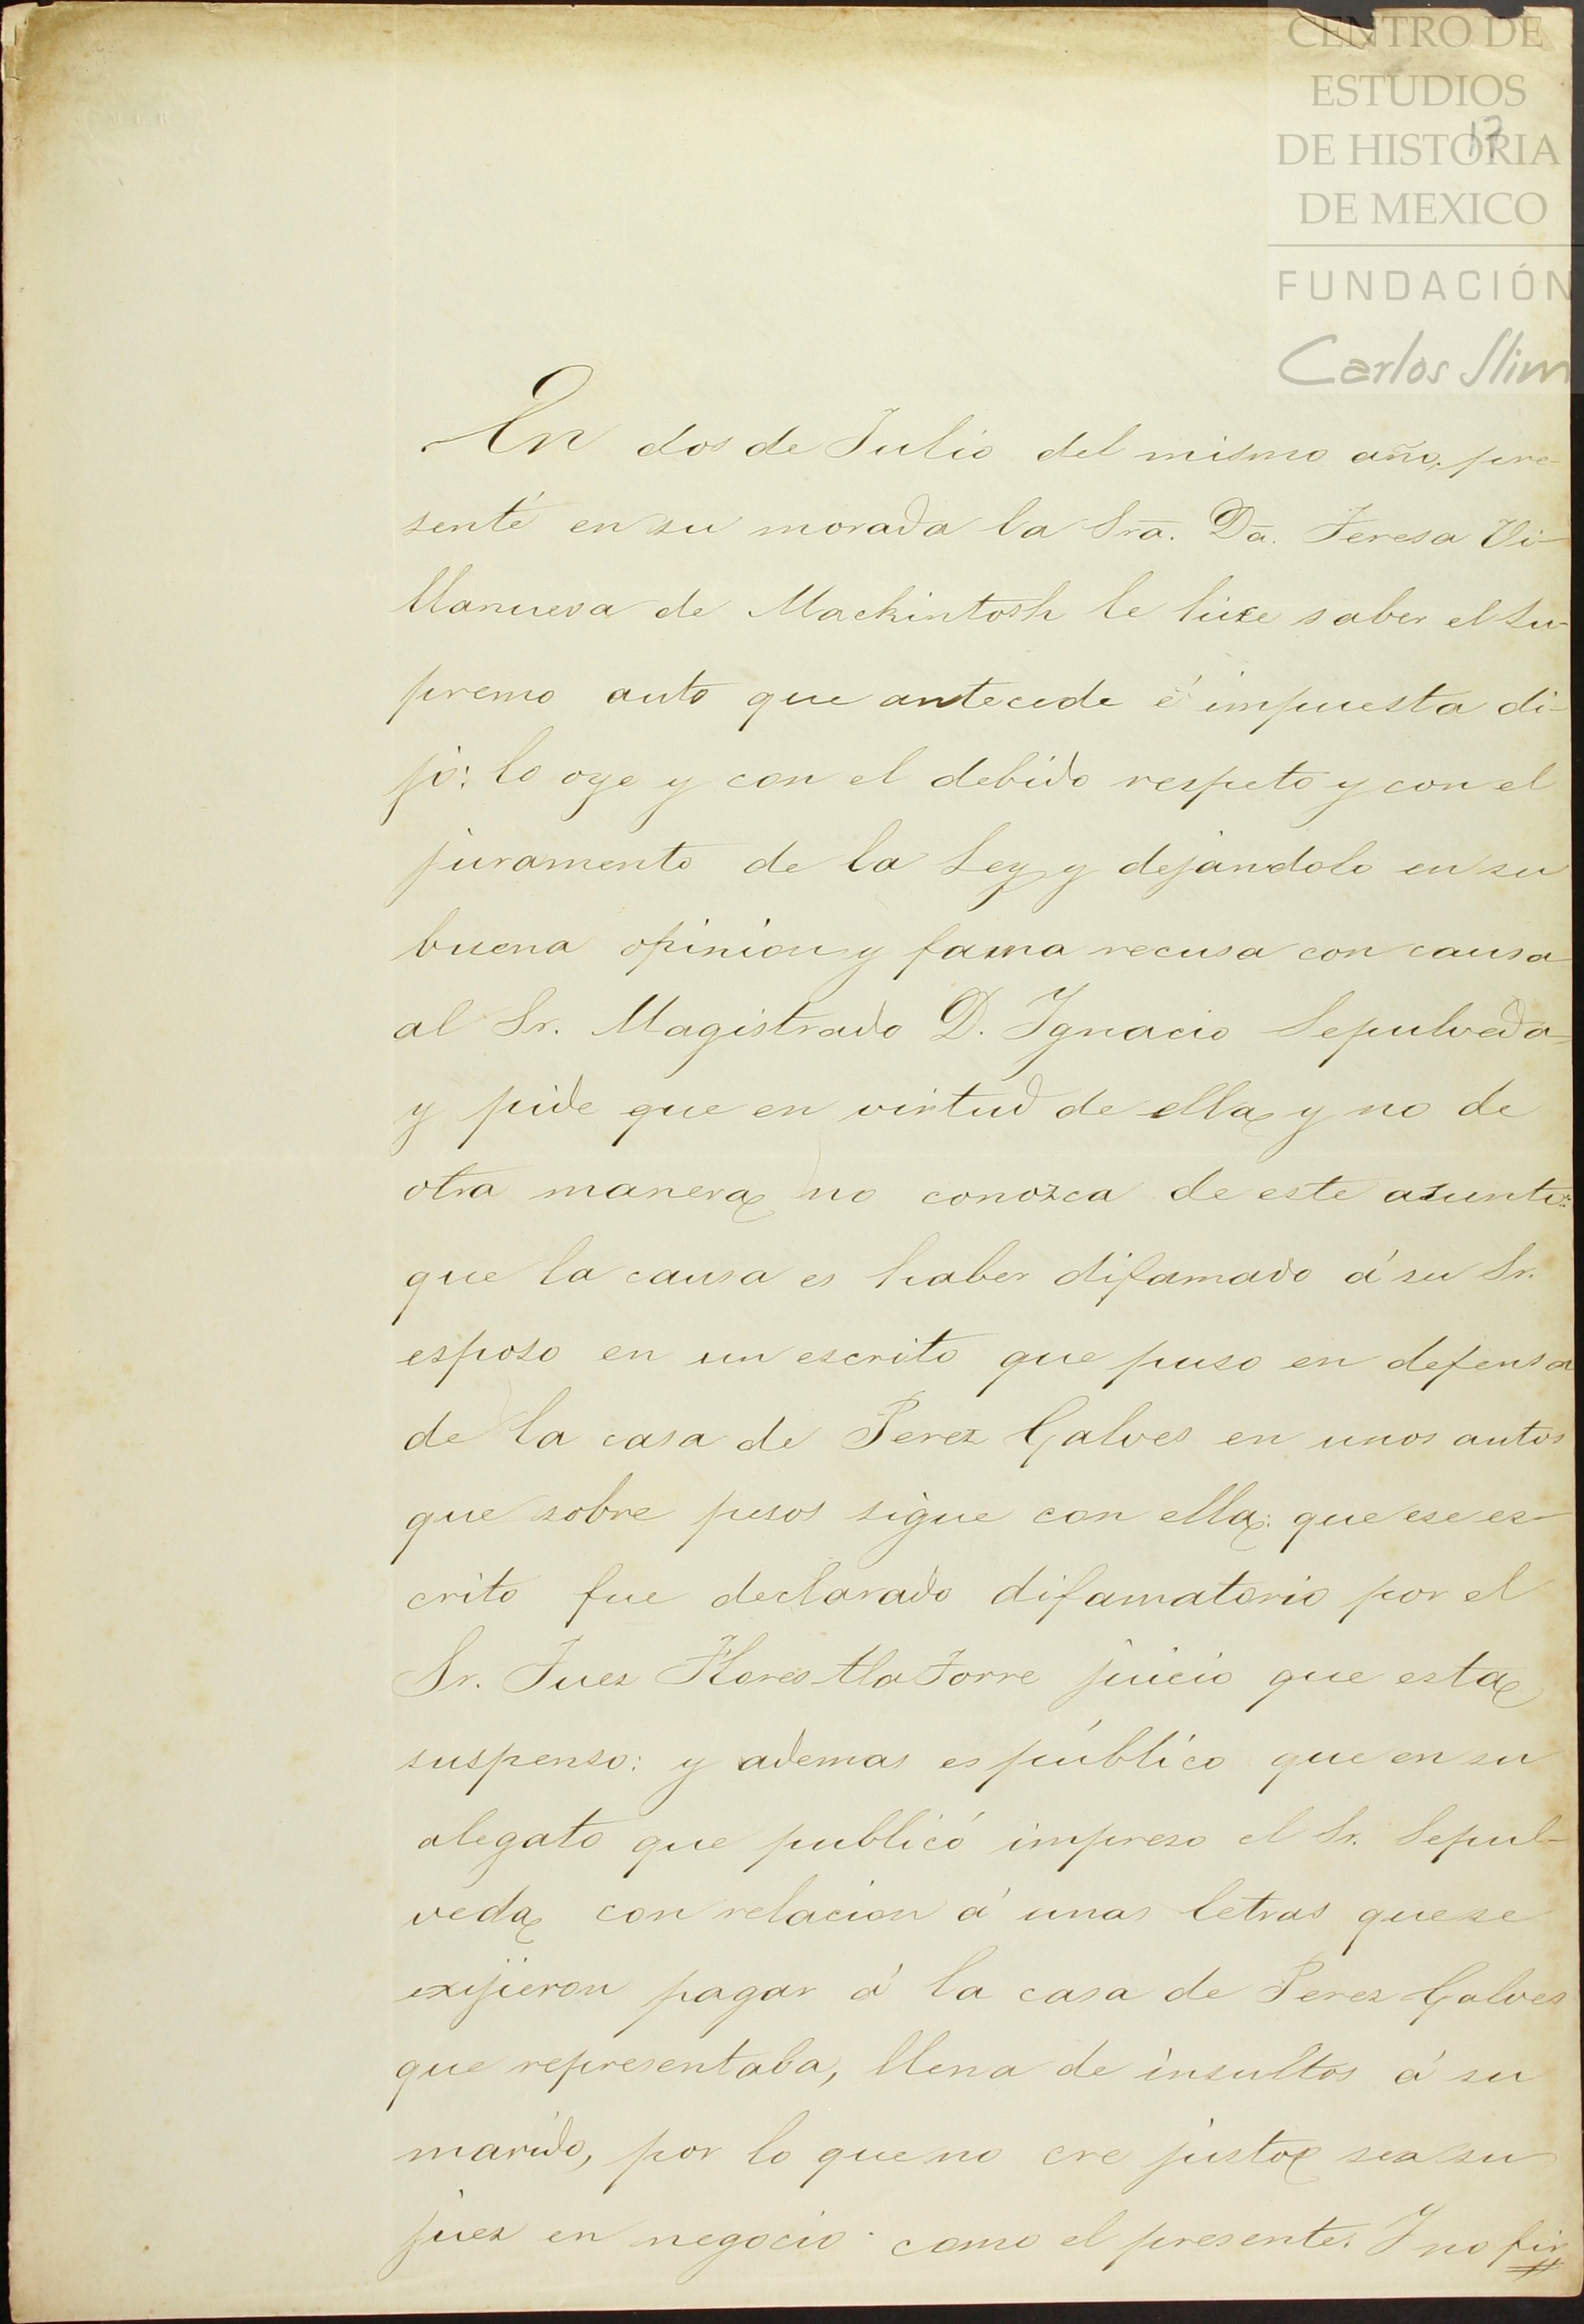 CENTRO DE
ESTUDIOS
DE HISTORIA
DE MEXICO
FUNDACIÓN
Carlos Slim
17
En dos de Julio del mismo año, pre-
senté en su morada la Sra. Da. Teresa Vi-
llanueva de Mackintosh le hice saber el Su-
premo auto que antecede é impuesta di-
jo: lo oye y con el debido respeto y con el
juramento de la Ley y dejándolo en su
buena opinion y fama recusa con causa
al Sr. Magistrado D. Ignacio Sepulveda
y pide que en virtud de ella, y no de
otra manera, no conozca de este asunto:
que la causa es haber difamado á su Sr.
esposo en un escrito que puso en defensa
de la casa de Perez Galves en unos autos
que sobre pesos sigue con ella: que ese es-
crito fue declarado difamatorio por el
Sr. Juez Flores Alatorre juicio que esta
suspenso: y ademas es público que en su
alegato que publicó impreso el Sr. Sepul-
veda, con relacion á unas letras que se
exijieron pagar á la casa de Perez Galves
que representaba, llena de insultos á su
marido, por lo que no cre justo, sea su
juez en negocio como el presente. Y no fir